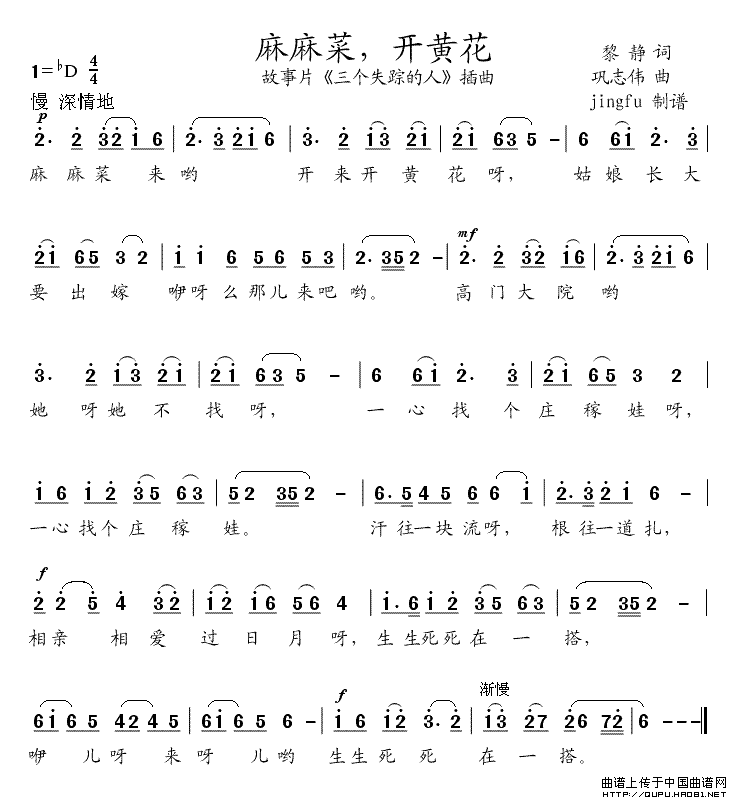 麻麻菜，开黄花
1=♭D 4/4
故事片《三个失踪的人》插曲
黎静 词
巩志伟 曲
慢 深情地
jingfu 制谱
p
2· 2 3 2 1 6 | 2· 3 2 1 6 | 3· 2 1 3 2 1 | 2 1 6 3 5 - | 6 6 1 2· 3 |
麻 麻菜 来哟 开来开 黄 花呀， 姑娘长大
mf
2 1 6 5 3 2 | 1 1 6 5 6 5 3 | 2· 3 5 2 - | 2· 2 3 2 1 6 | 2· 3 2 1 6 |
要出嫁 咿呀么那儿来吧哟。 高门大院哟
3· 2 1 3 2 1 | 2 1 6 3 5 - | 6 6 1 2· 3 | 2 1 6 5 3 2 |
她呀她 不找呀， 一心找个庄稼娃呀，
1 6 1 2 3 5 6 3 | 5 2 3 5 2 - | 6· 5 4 5 6 6 1 | 2· 3 2 1 6 - |
一心找个庄稼娃。 汗往一块流呀， 根往一道扎，
f
2 2 5 4 3 2 | 1 2 1 6 5 6 4 | 1· 6 1 2 3 5 6 3 | 5 2 3 5 2 - |
相亲相爱过日月呀，生生死死在一搭，
f 渐慢
6 1 6 5 4 2 4 5 | 6 1 6 5 5 - | 1 6 1 2 3· 2 | 1 3 2 7 2 6 7 2 | 6 - - - ‖
咿儿呀来呀儿哟 生生死死在一搭。
曲谱上传于中国曲谱网
HTTP://QUPU.HAO81.NET